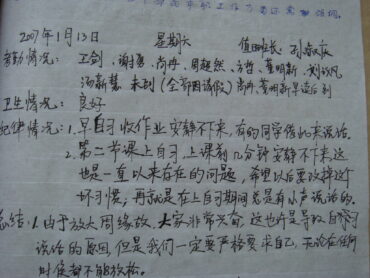 2007年1月13日 星期六 值日班长
考勤情况: 王剑、尚丹、周超然、董明新、
汤新慧 未到(全部因请假)尚丹、董明新早读后到
卫生情况: 良好
纪律情况: 1.早自习收作业安静不下来,有的同学借此来说话。
2.第二节课上自习,上课前几分钟安静不下来,这
也是一直以来存在的问题,希望以后要改掉这个
坏习惯,再就是在上自习期间总是有小声说话的。
总结: 1.由于放大周缘故,大家非常兴奋,这也许是导致自习
说话的原因,但是我们一定要严格要求自己,无论在任何
时候都不能放松。